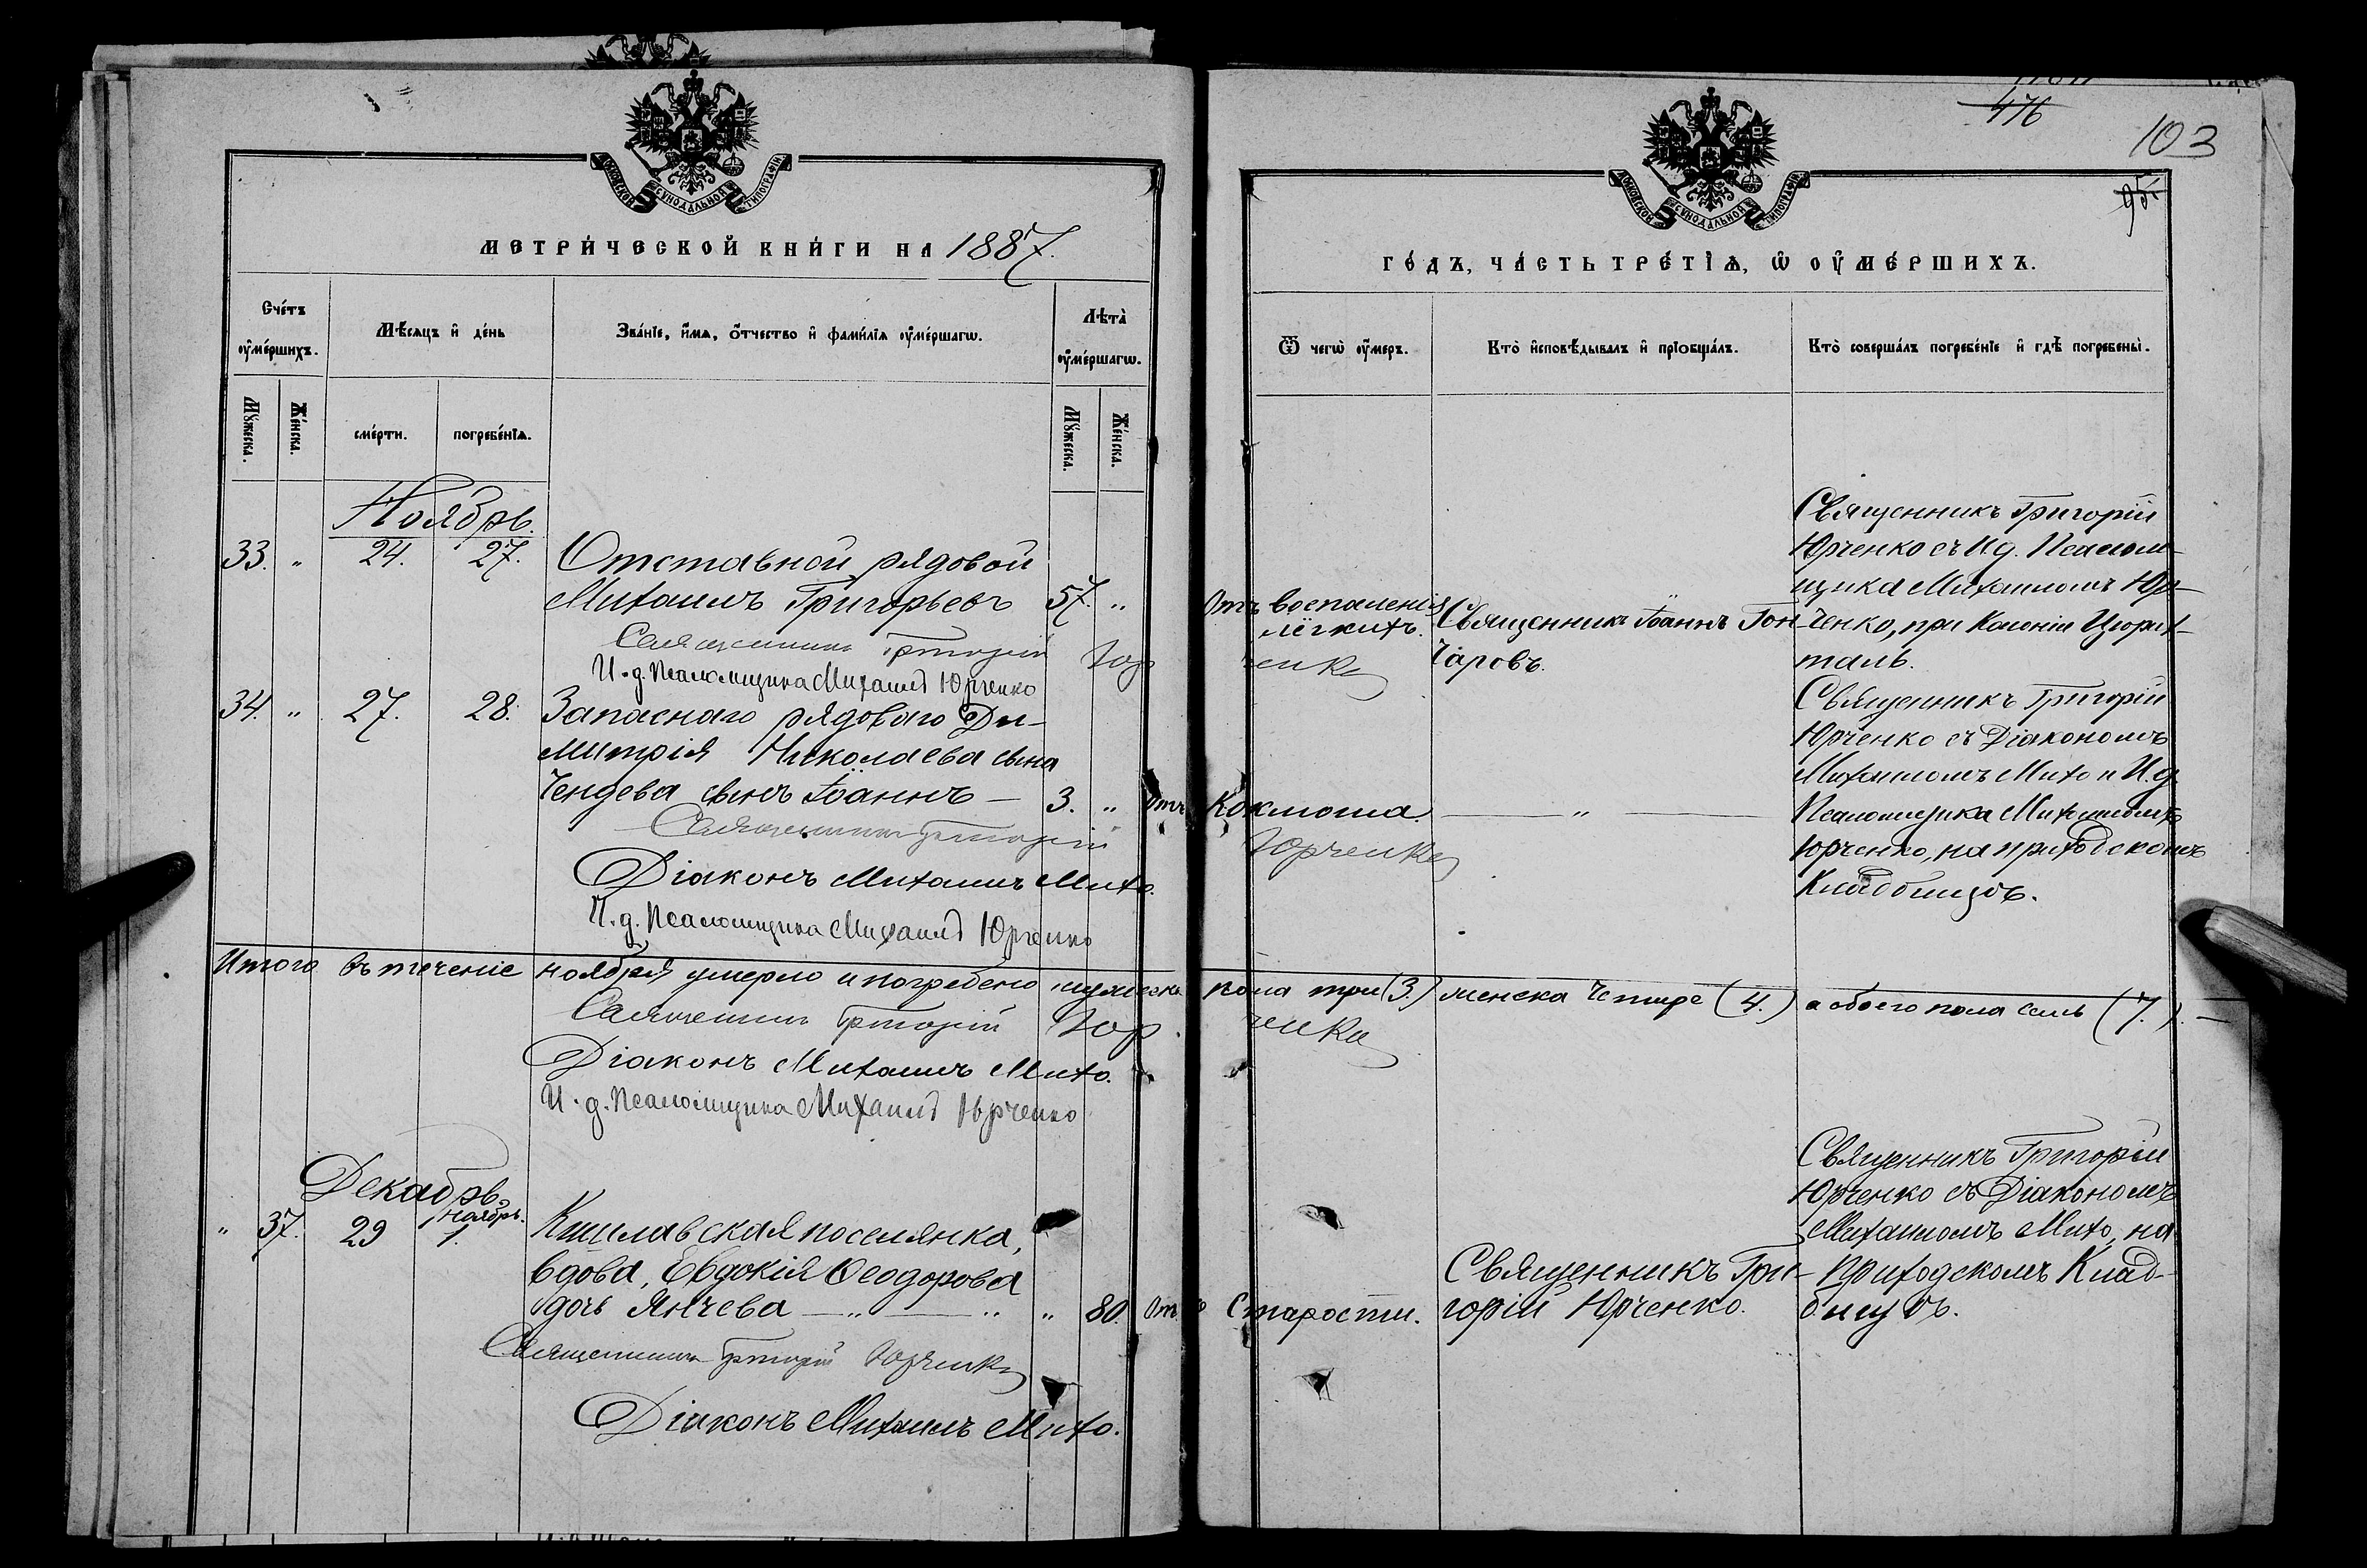 476
103
95
МОСКОВСКОЙ СѴНОДАЛЬНОЙ ТИПОГРАФІИ
МОСКОВСКОЙ СѴНОДАЛЬНОЙ ТИПОГРАФІИ
МЕТРИ́ЧЕСКОЙ КНИ́ГИ НА 1887.
ГО́ДЪ, ЧА́СТЬ ТРЕ́ТІѦ, Ѿ ОУ҆МЕ́РШИХЪ.
Сче́тъ оу҆ме́ршихъ.
Мѣ́сяцъ и҆ де́нь
Зва́нїе, и҆́мѧ, ѻ҆́тчество и҆ фами́лїѧ оу҆ме́ршагѡ.
Лѣ́та оу҆ме́ршагѡ.
Ѿ чегѡ̀ оу҆́меръ.
Кто̀ и҆сповѣ́дывалъ и҆ прїобща́лъ.
Кто̀ соверша́лъ погребе́нїе и҆ гдѣ̀ погребены̀.
Мꙋ́жеска.
Же́нска.
сме́рти.
погребе́нїѧ.
Мꙋ́жеска.
Же́нска.
Ноябрь.
33. " 24. 27. Отставной рядовой
Михаилъ Григорьевъ 57. "
Отъ воспаленія
лёгкихъ.
Священникъ Іоаннъ Гон-
чаровъ.
Священникъ Григорій
Юрченко съ И д. Псалом-
щика Михаиломъ Юр-
ченко, при Колоніи Цюрих-
таль.
Священникъ Григорій Юрченко
И. д. Псаломщика Михаилъ Юрченко
34. " 27. 28. Запаснаго рядоваго Ди-
митрія Николаева сына
Ченгева сынъ Іоаннъ — 3. "
Отъ Коклюша. — " —
Священникъ Григорій
Юрченко съ Діакономъ
Михаиломъ Михо и И. д.
Псаломщика Михаиломъ
Юрченко, на приходскомъ
Кладбищѣ.
Священникъ Григорій Юрченко
Діаконъ Михаилъ Михо.
И. д. Псаломщика Михаилъ Юрченко
Итого въ теченіе ноября умерло и погребено мужеска пола три (3.) женска четыре (4.) а обоего пола семь (7.). —
Священникъ Григорій Юрченко
Діаконъ Михаилъ Михо.
И. д. Псаломщика Михаилъ Юрченко
Декабрь.
ноябрь.
" 37. 29 1. Кишлавская поселянка,
вдова, Евдокія Ѳеодорова
дочь Янчева — " — " " 80.
Отъ Старости.
Священникъ Гри-
горій Юрченко.
Священникъ Григорій
Юрченко съ Діакономъ
Михаиломъ Михо, на
приходскомъ Клад-
бищѣ.
Священникъ Григорій Юрченко
Діаконъ Михаилъ Михо.